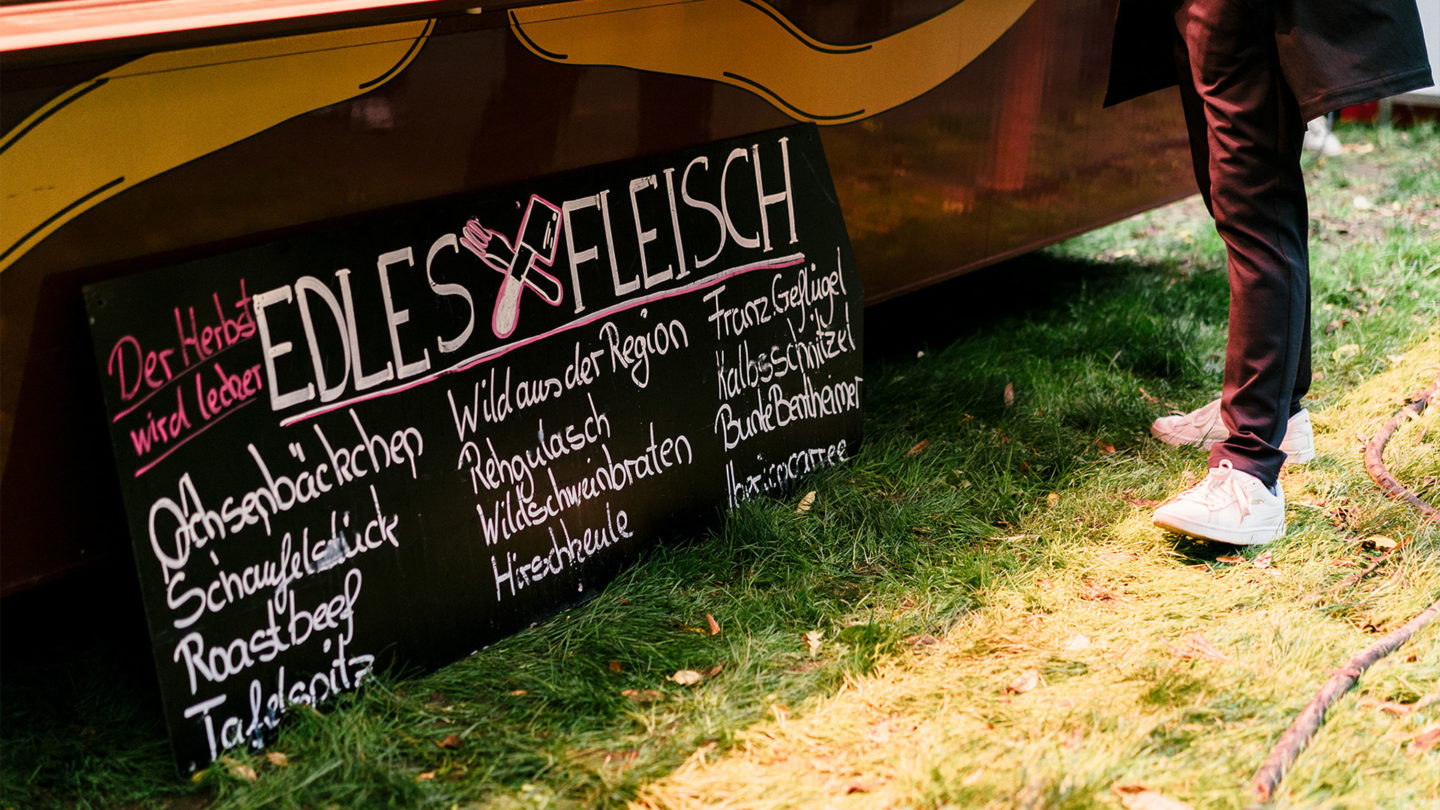 Der Herbst
wird lecker
EDLES FLEISCH
Ochsenbäckchen
Schaufelstück
Roastbeef
Tafelspitz
Wild aus der Region
Rehgulasch
Wildschweinbraten
Hirschkeule
Franz. Geflügel
Kalbsschnitzel
Bunte Bentheimer